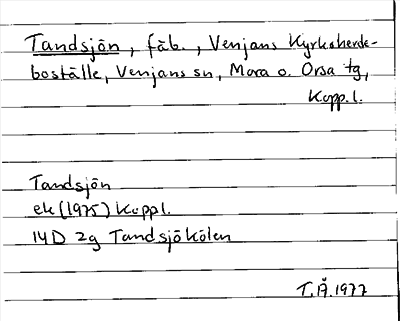 Tandsjön, fäb., Venjans Kyrkoherde-
boställe, Venjans sn, Mora o. Orsa tg,
Kopp.l.
Tandsjön
ek (1975) Koppl.
14D 2g Tandsjökölen
T.Å.1977